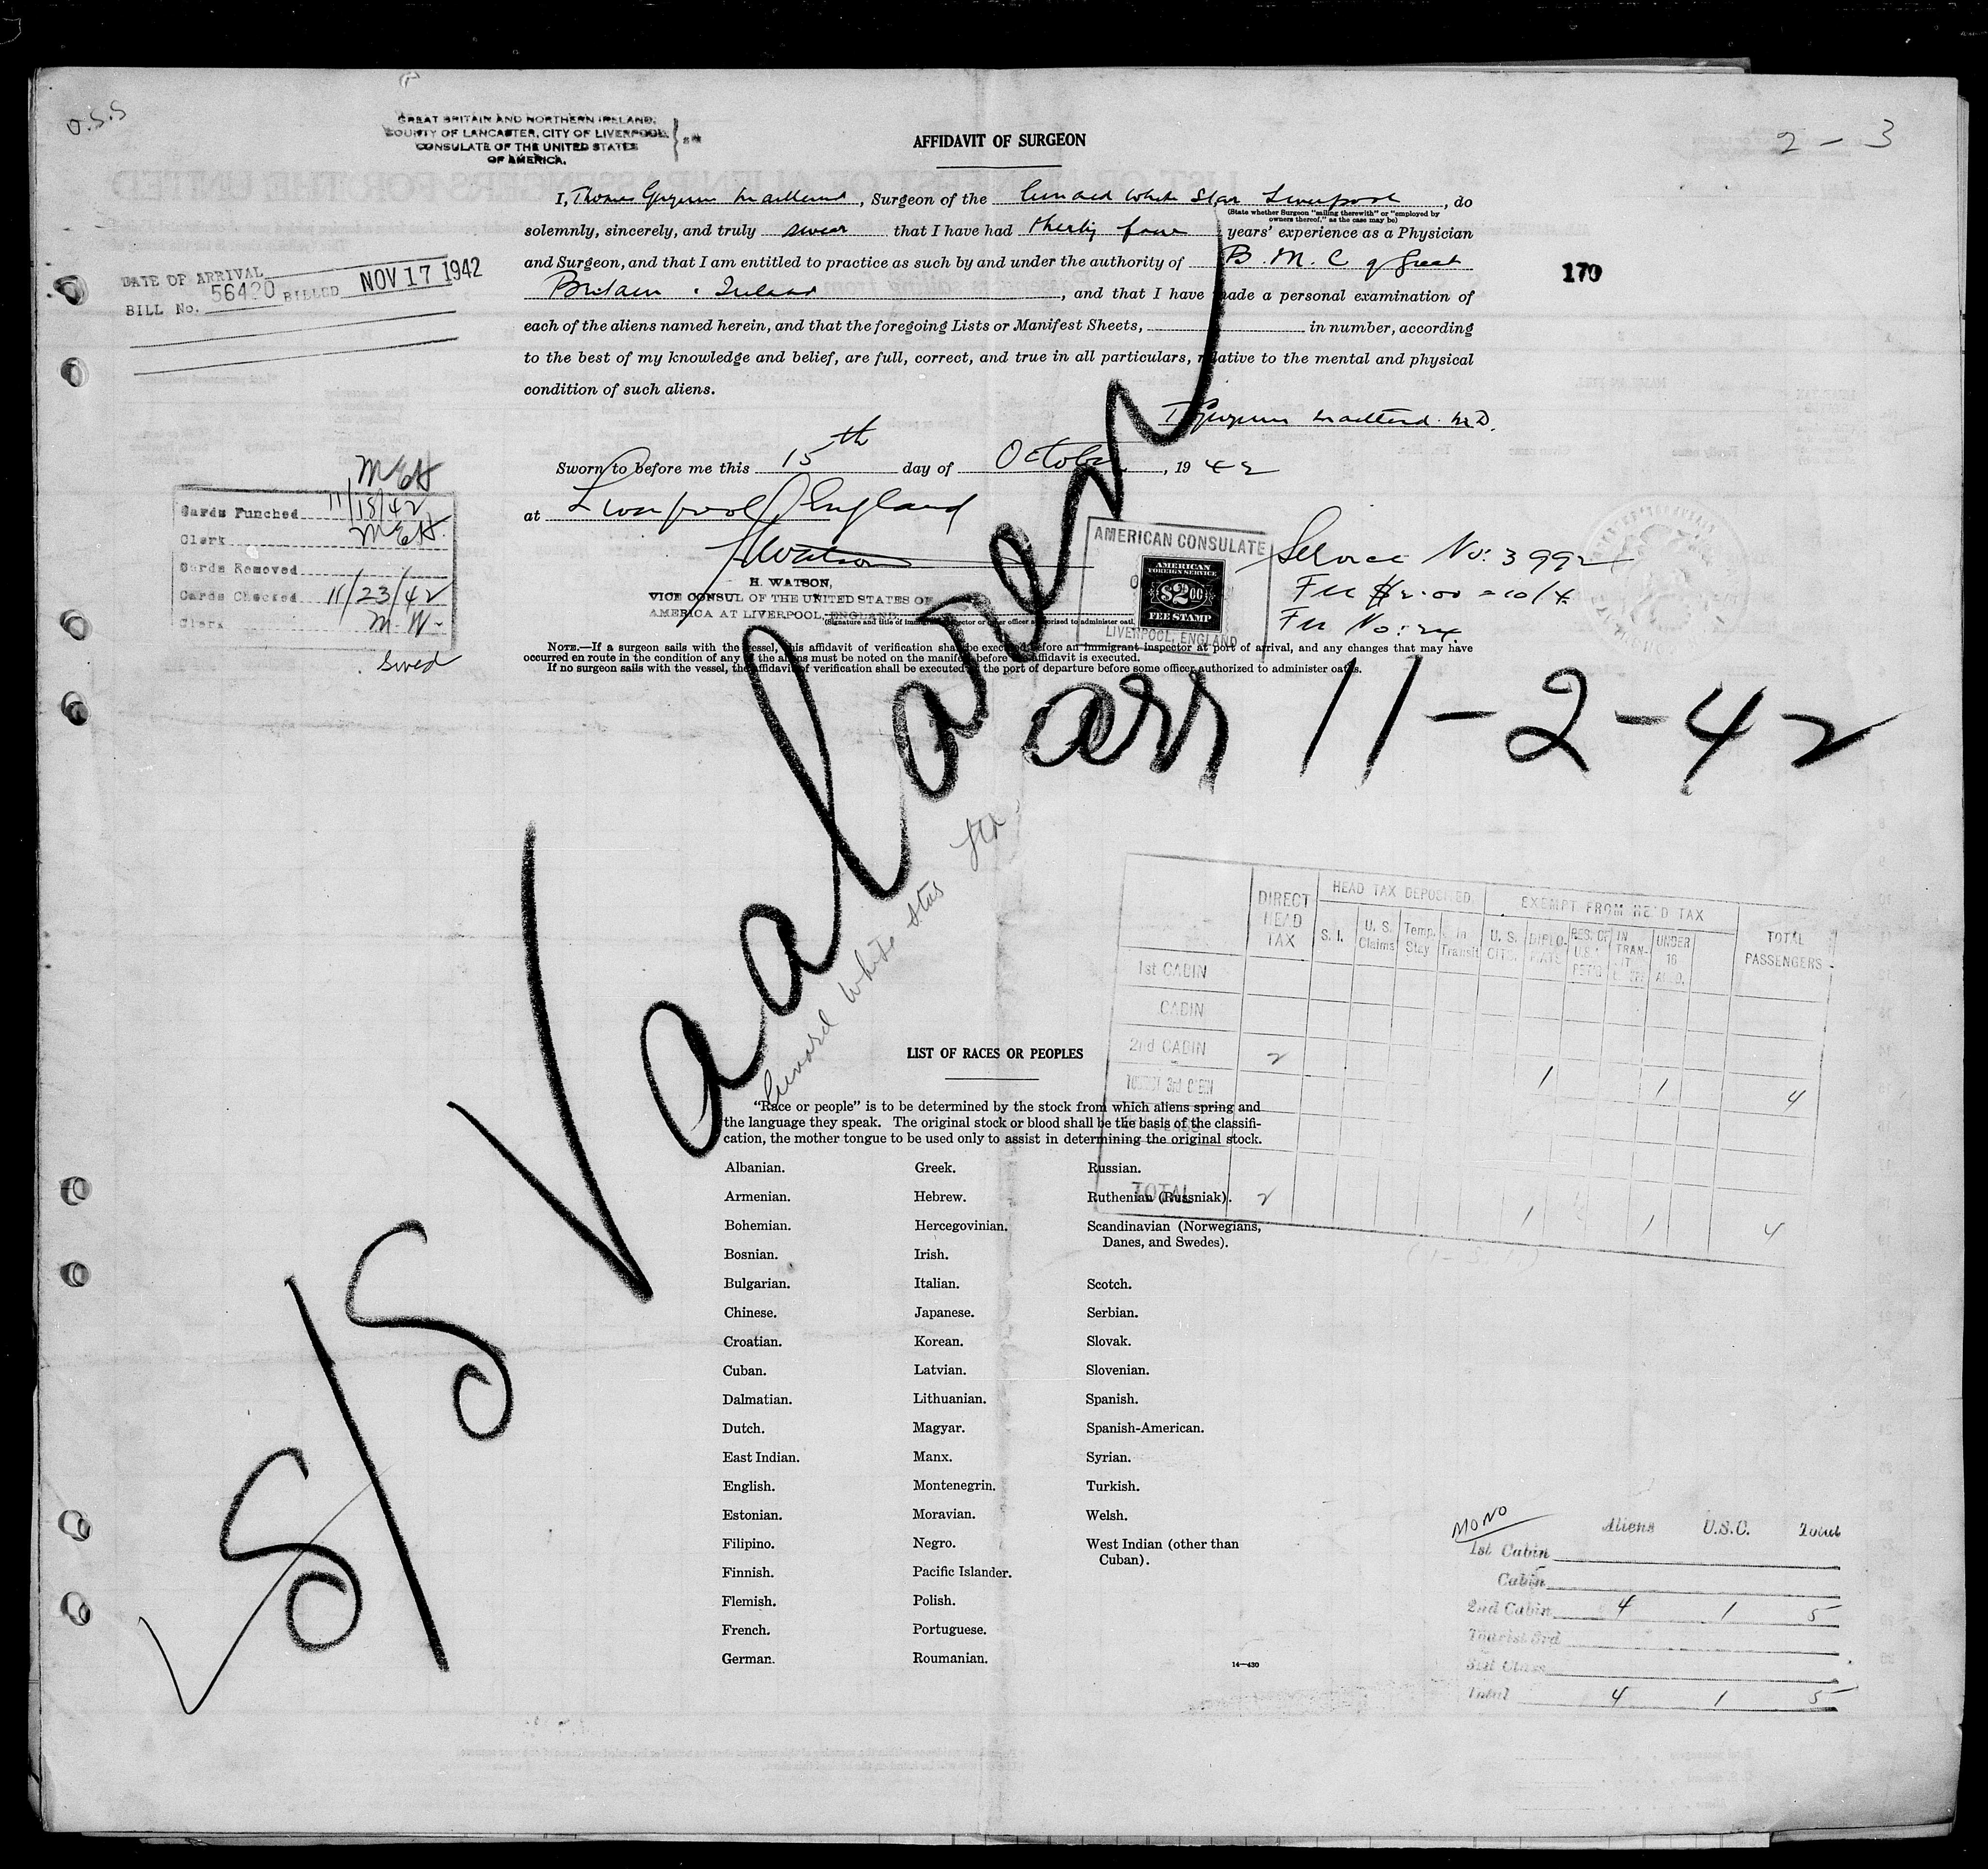 O.S.S
GREAT BRITAIN AND NORTHERN IRELAND,
COUNTY OF LANCASTER, CITY OF LIVERPOOL,
CONSULATE OF THE UNITED STATES
OF AMERICA.
} SS
AFFIDAVIT OF SURGEON
2 - 3
I, Thomas Maitland, Surgeon of the Cunard White Star Liverpool, do
(State whether Surgeon "sailing therewith" or "employed by
owners thereof," as the case may be)
solemnly, sincerely, and truly swear that I have had thirty four years' experience as a Physician
and Surgeon, and that I am entitled to practice as such by and under the authority of B. M. C of Great
Britain & Ireland, and that I have made a personal examination of
each of the aliens named herein, and that the foregoing Lists or Manifest Sheets, in number, according
to the best of my knowledge and belief, are full, correct, and true in all particulars, relative to the mental and physical
condition of such aliens.
170
DATE OF ARRIVAL
BILL No. 56420 BILLED NOV 17 1942
Maitland M.D.
Sworn to before me this 15th day of October, 1942
at Liverpool, England
H Watson
H. WATSON,
VICE CONSUL OF THE UNITED STATES OF
AMERICA AT LIVERPOOL, ENGLAND.
(Signature and title of immigrant inspector or other officer authorized to administer oath)
AMERICAN CONSULATE
AMERICAN
FOREIGN SERVICE
$2.00
FEE STAMP
LIVERPOOL, ENGLAND
Service No: 3992
Fee $2.00 = 10/4
Fee No: 24
MEH
Cards Punched 11/18/42
Clerk MEH.
Cards Removed
Cards Checked 11/23/42
Clerk M.W.
NOTE.—If a surgeon sails with the vessel, this affidavit of verification shall be executed before an immigrant inspector at port of arrival, and any changes that may have
occurred en route in the condition of any of the aliens must be noted on the manifest before the affidavit is executed.
If no surgeon sails with the vessel, the affidavit of verification shall be executed at the port of departure before some officer authorized to administer oaths.
S/S Vaalaren
arr 11-2-42
Cunard White Star Ltd
DIRECT
HEAD
TAX
HEAD TAX DEPOSITED
EXEMPT FROM HEAD TAX
TOTAL
PASSENGERS
S. I.
U. S.
Claims
Temp.
Stay
In
Transit
U. S.
CITS.
DIPLO-
MATS
RES. OF
U.S.
RET'G
IN
TRAN-
SIT
UNDER
16
1st CABIN
CABIN
2nd CABIN 2 1 1 4
TOURIST 3rd CABIN
TOTAL 2 1 1 4
LIST OF RACES OR PEOPLES
"Race or people" is to be determined by the stock from which aliens spring and
the language they speak. The original stock or blood shall be the basis of the classifi-
cation, the mother tongue to be used only to assist in determining the original stock.
Albanian.
Armenian.
Bohemian.
Bosnian.
Bulgarian.
Chinese.
Croatian.
Cuban.
Dalmatian.
Dutch.
East Indian.
English.
Estonian.
Filipino.
Finnish.
Flemish.
French.
German.
Greek.
Hebrew.
Hercegovinian.
Irish.
Italian.
Japanese.
Korean.
Latvian.
Lithuanian.
Magyar.
Manx.
Montenegrin.
Moravian.
Negro.
Pacific Islander.
Polish.
Portuguese.
Roumanian.
Russian.
Ruthenian (Russniak).
Scandinavian (Norwegians,
Danes, and Swedes).
Scotch.
Serbian.
Slovak.
Slovenian.
Spanish.
Spanish-American.
Syrian.
Turkish.
Welsh.
West Indian (other than
Cuban).
14—430
MONO
Aliens U.S.C. Total
1st Cabin
Cabin
2nd Cabin 4 1 5
Tourist 3rd
3rd Class
Total 4 1 5